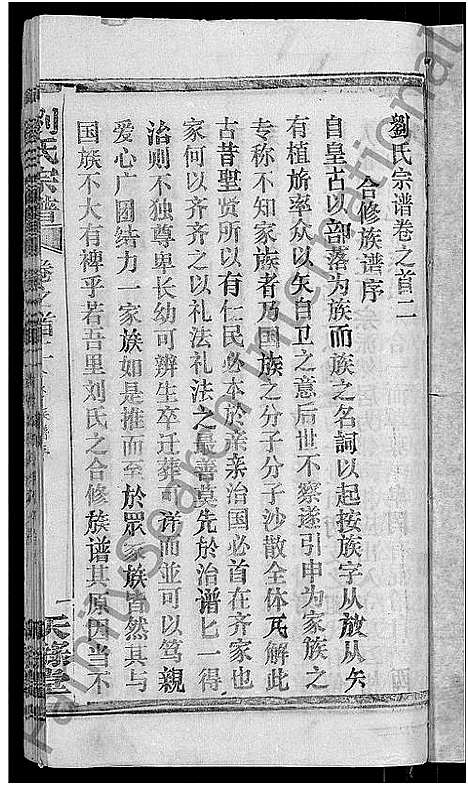 劉氏宗谱卷之首二
合修族谱序
自皇古以部落为族而族之名詞以起按族字从放从矢
有植旂率众以矢自卫之意后世不察遂引申为家族之
专称不知家族者乃国族之分子分子沙散全体瓦解此
古昔聖贤所以有仁民必本於亲亲治国必首在齐家也
家何以齐齐之以礼法礼法之最善莫先於治谱匕一得
治则不独尊卑长幼可辨生卒迁葬可详而並可以笃親
爱心广團结力一家族如是推而至於眾家族皆然其与
国族不大有裨乎若吾里刘氏之合修族谱其原因当不
刘氏宗谱
卷之首二
FamilySearch International